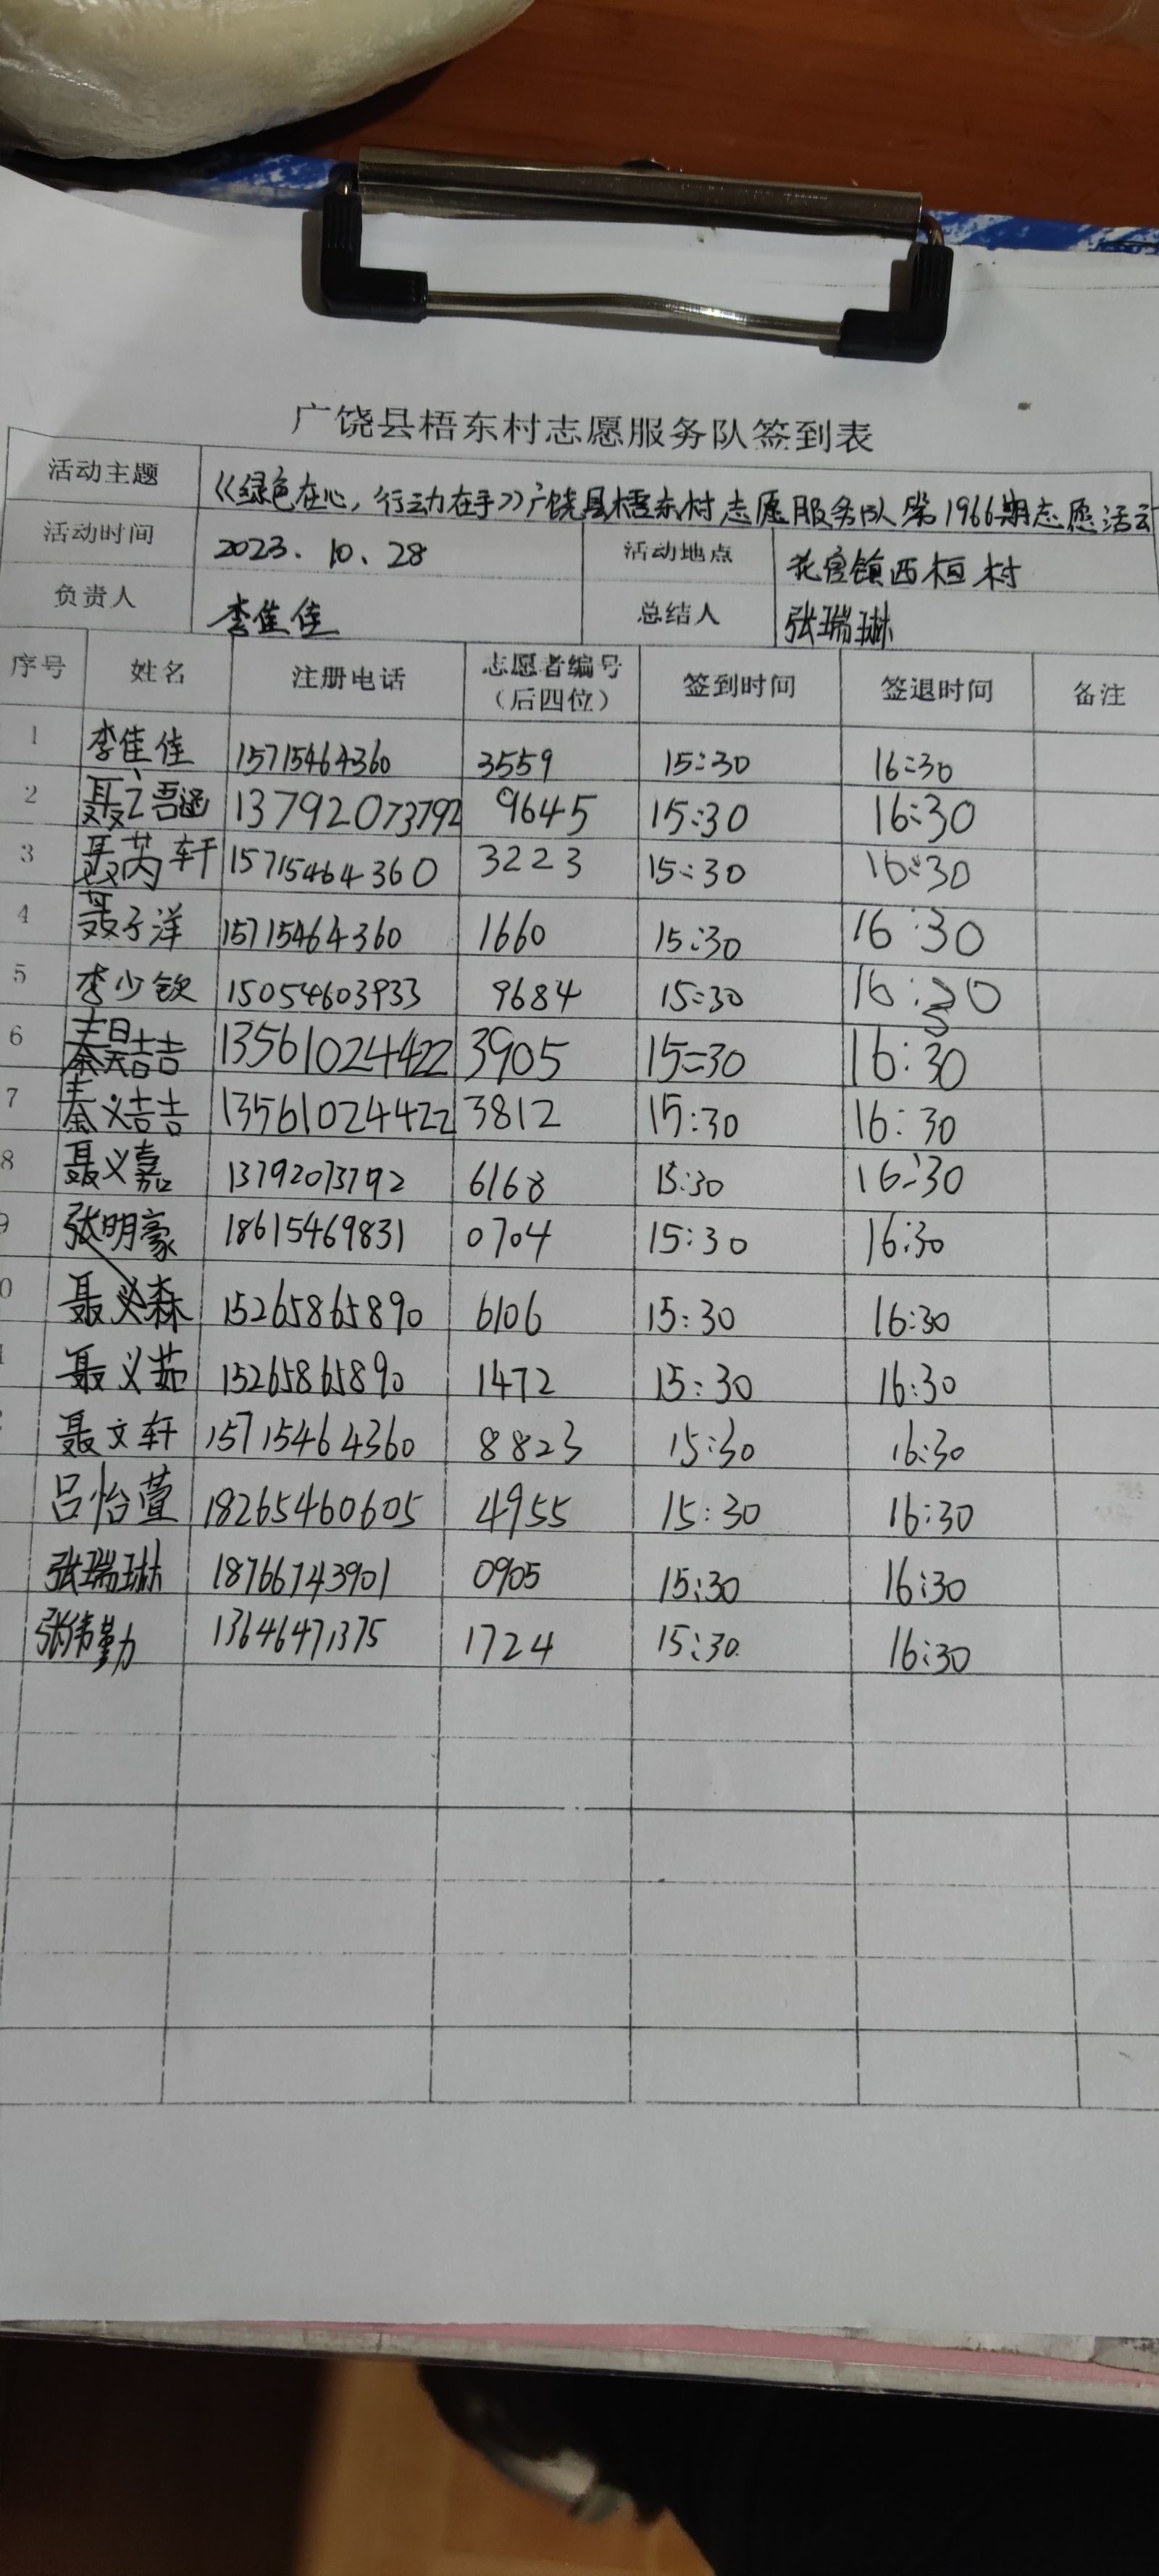 广饶县梧东村志愿服务队签到表
活动主题 《绿色在心，行动在手》广饶县梧东村志愿服务队第1966期志愿活动
活动时间 2023.10.28 活动地点 花官镇西桓村
负责人 李佳佳 总结人 张瑞琳
序号 姓名 注册电话 志愿者编号（后四位） 签到时间 签退时间 备注
1 李佳佳 15715464360 3559 15:30 16:30
2 聂语涵 13792073792 9645 15:30 16:30
3 聂芮轩 15715464360 3223 15:30 16:30
4 聂子洋 15715464360 1660 15:30 16:30
5 李少钦 15054603933 9684 15:30 16:30
6 秦昊喆 13561024422 3905 15:30 16:30
7 秦义喆 13561024422 3812 15:30 16:30
8 聂义嘉 13792073792 6168 15:30 16:30
9 张明豪 18615469831 0704 15:30 16:30
0 聂义森 15265865890 6106 15:30 16:30
聂义茹 15265865890 1472 15:30 16:30
聂文轩 15715464360 8823 15:30 16:30
吕怡萱 18265460605 4955 15:30 16:30
张瑞琳 18766743901 0905 15:30 16:30
张伟勤 13646471375 1724 15:30 16:30